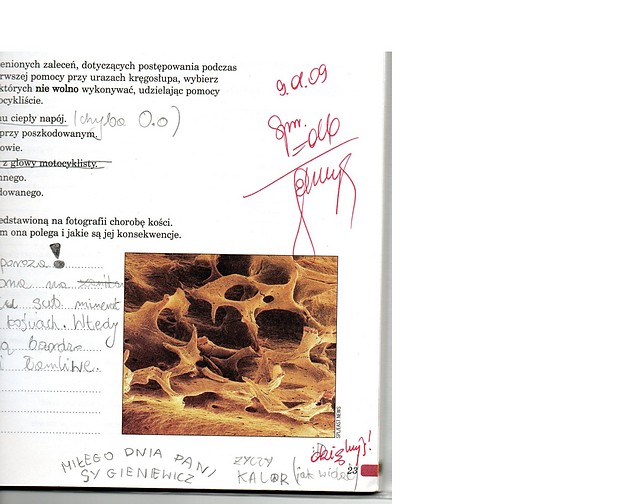 enionych zaleceń, dotyczących postępowania podczas
rwszej pomocy przy urazach kręgosłupa, wybierz
których nie wolno wykonywać, udzielając pomocy
ocykliście.
u ciepły napój. (chyba O.o)
przy poszkodowanym.
owie.
z głowy motocyklisty.
nnego.
dowanego.
9.01.09
Spr.
edstawioną na fotografii chorobę kości.
m ona polega i jakie są jej konsekwencje.
poroza!
ona na
sub minerał
kościach. Wtedy
ą bardzo
i łamliwe.
SPL/EAST NEWS
MIŁEGO DNIA PANI
SYGIENIEWICZ
ŻYCZY
KALOR (jak widać)
dziękuję!
23